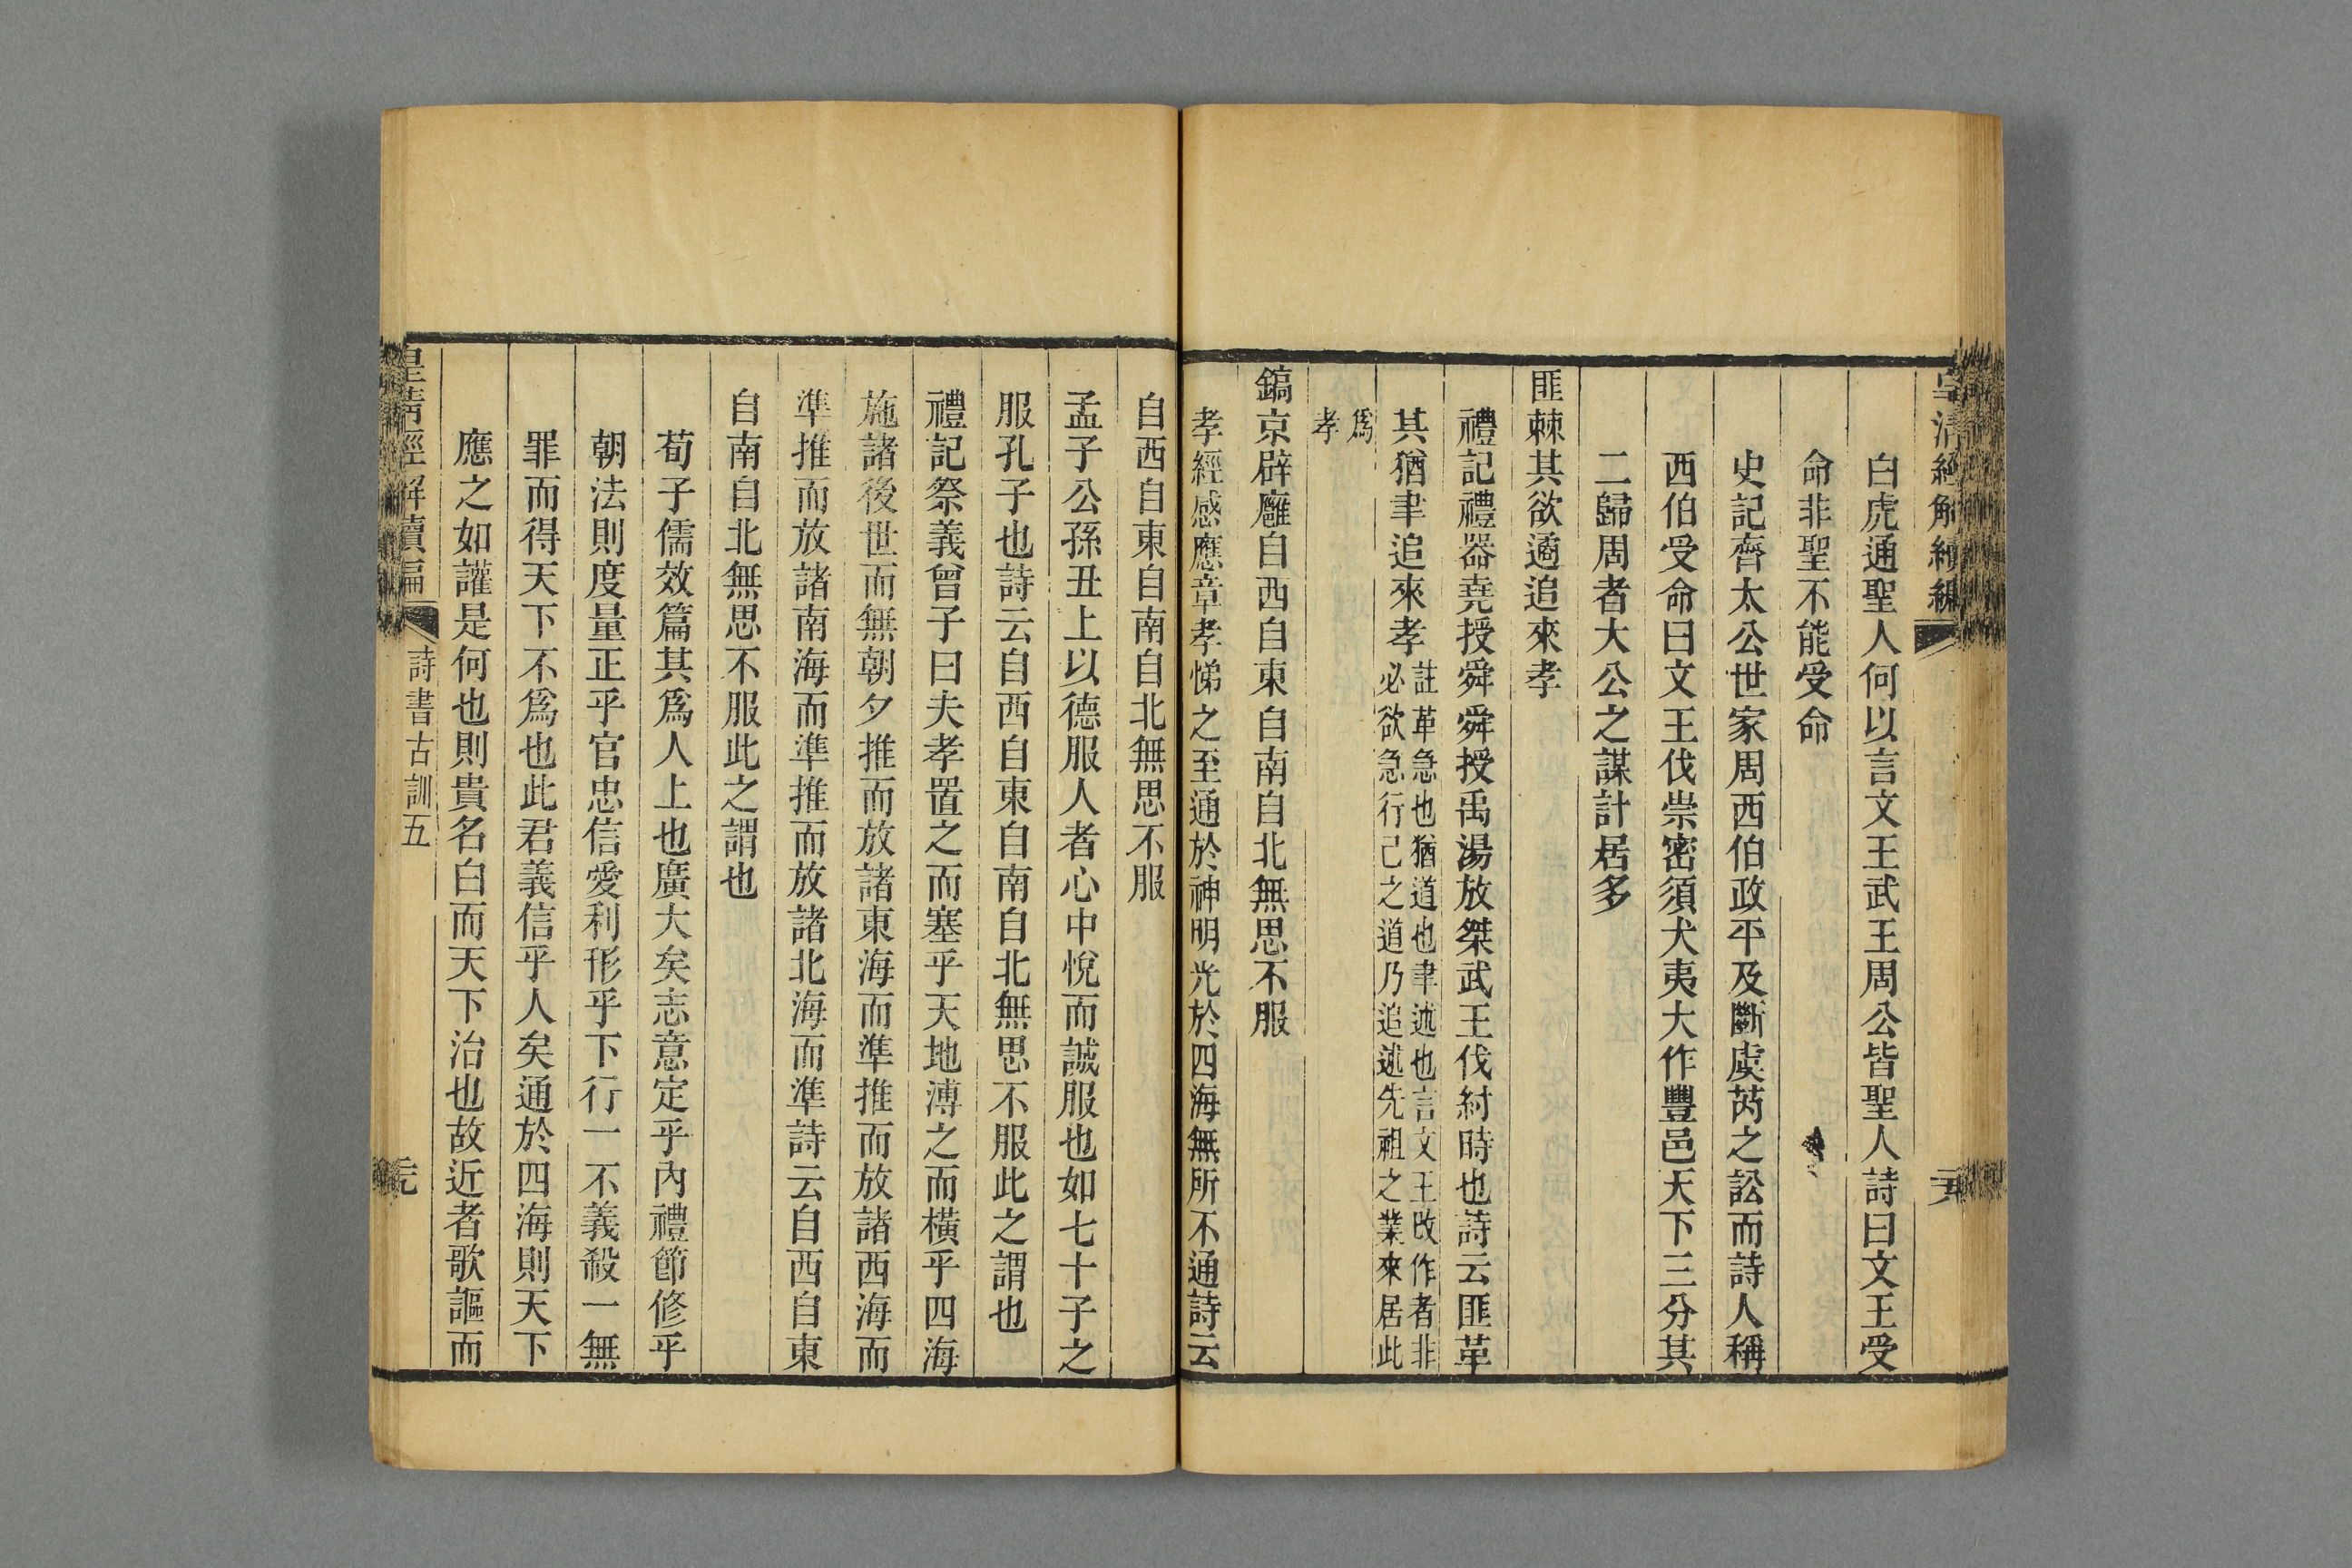 皇清經解續編
白虎通聖人何以言文王武王周公皆聖人詩曰文王受
命非聖不能受命
史記齊太公世家周西伯政平及斷虞芮之訟而詩人稱
西伯受命曰文王伐崇密須犬夷大作豐邑天下三分其
二歸周者大公之謀計居多
匪棘其欲遹追來孝
禮記禮器堯授舜舜授禹湯放桀武王伐紂時也詩云匪革
其猶聿追來孝註革急也猶道也聿述也言文王改作者非
必欲急行己之道乃追述先祖之業來居此
爲
孝
鎬京辟廱自西自東自南自北無思不服
孝經感應章孝悌之至通於神明光於四海無所不通詩云
自西自東自南自北無思不服
孟子公孫丑上以德服人者心中悅而誠服也如七十子之
服孔子也詩云自西自東自南自北無思不服此之謂也
禮記祭義曾子曰夫孝置之而塞乎天地溥之而橫乎四海
施諸後世而無朝夕推而放諸東海而準推而放諸西海而
準推而放諸南海而準推而放諸北海而準詩云自西自東
自南自北無思不服此之謂也
荀子儒效篇其爲人上也廣大矣志意定乎內禮節修乎
朝法則度量正乎官忠信愛利形乎下行一不義殺一無
罪而得天下不爲也此君義信乎人矣通於四海則天下
應之如讙是何也則貴名白而天下治也故近者歌謳而
皇清經解續編
詩書古訓五